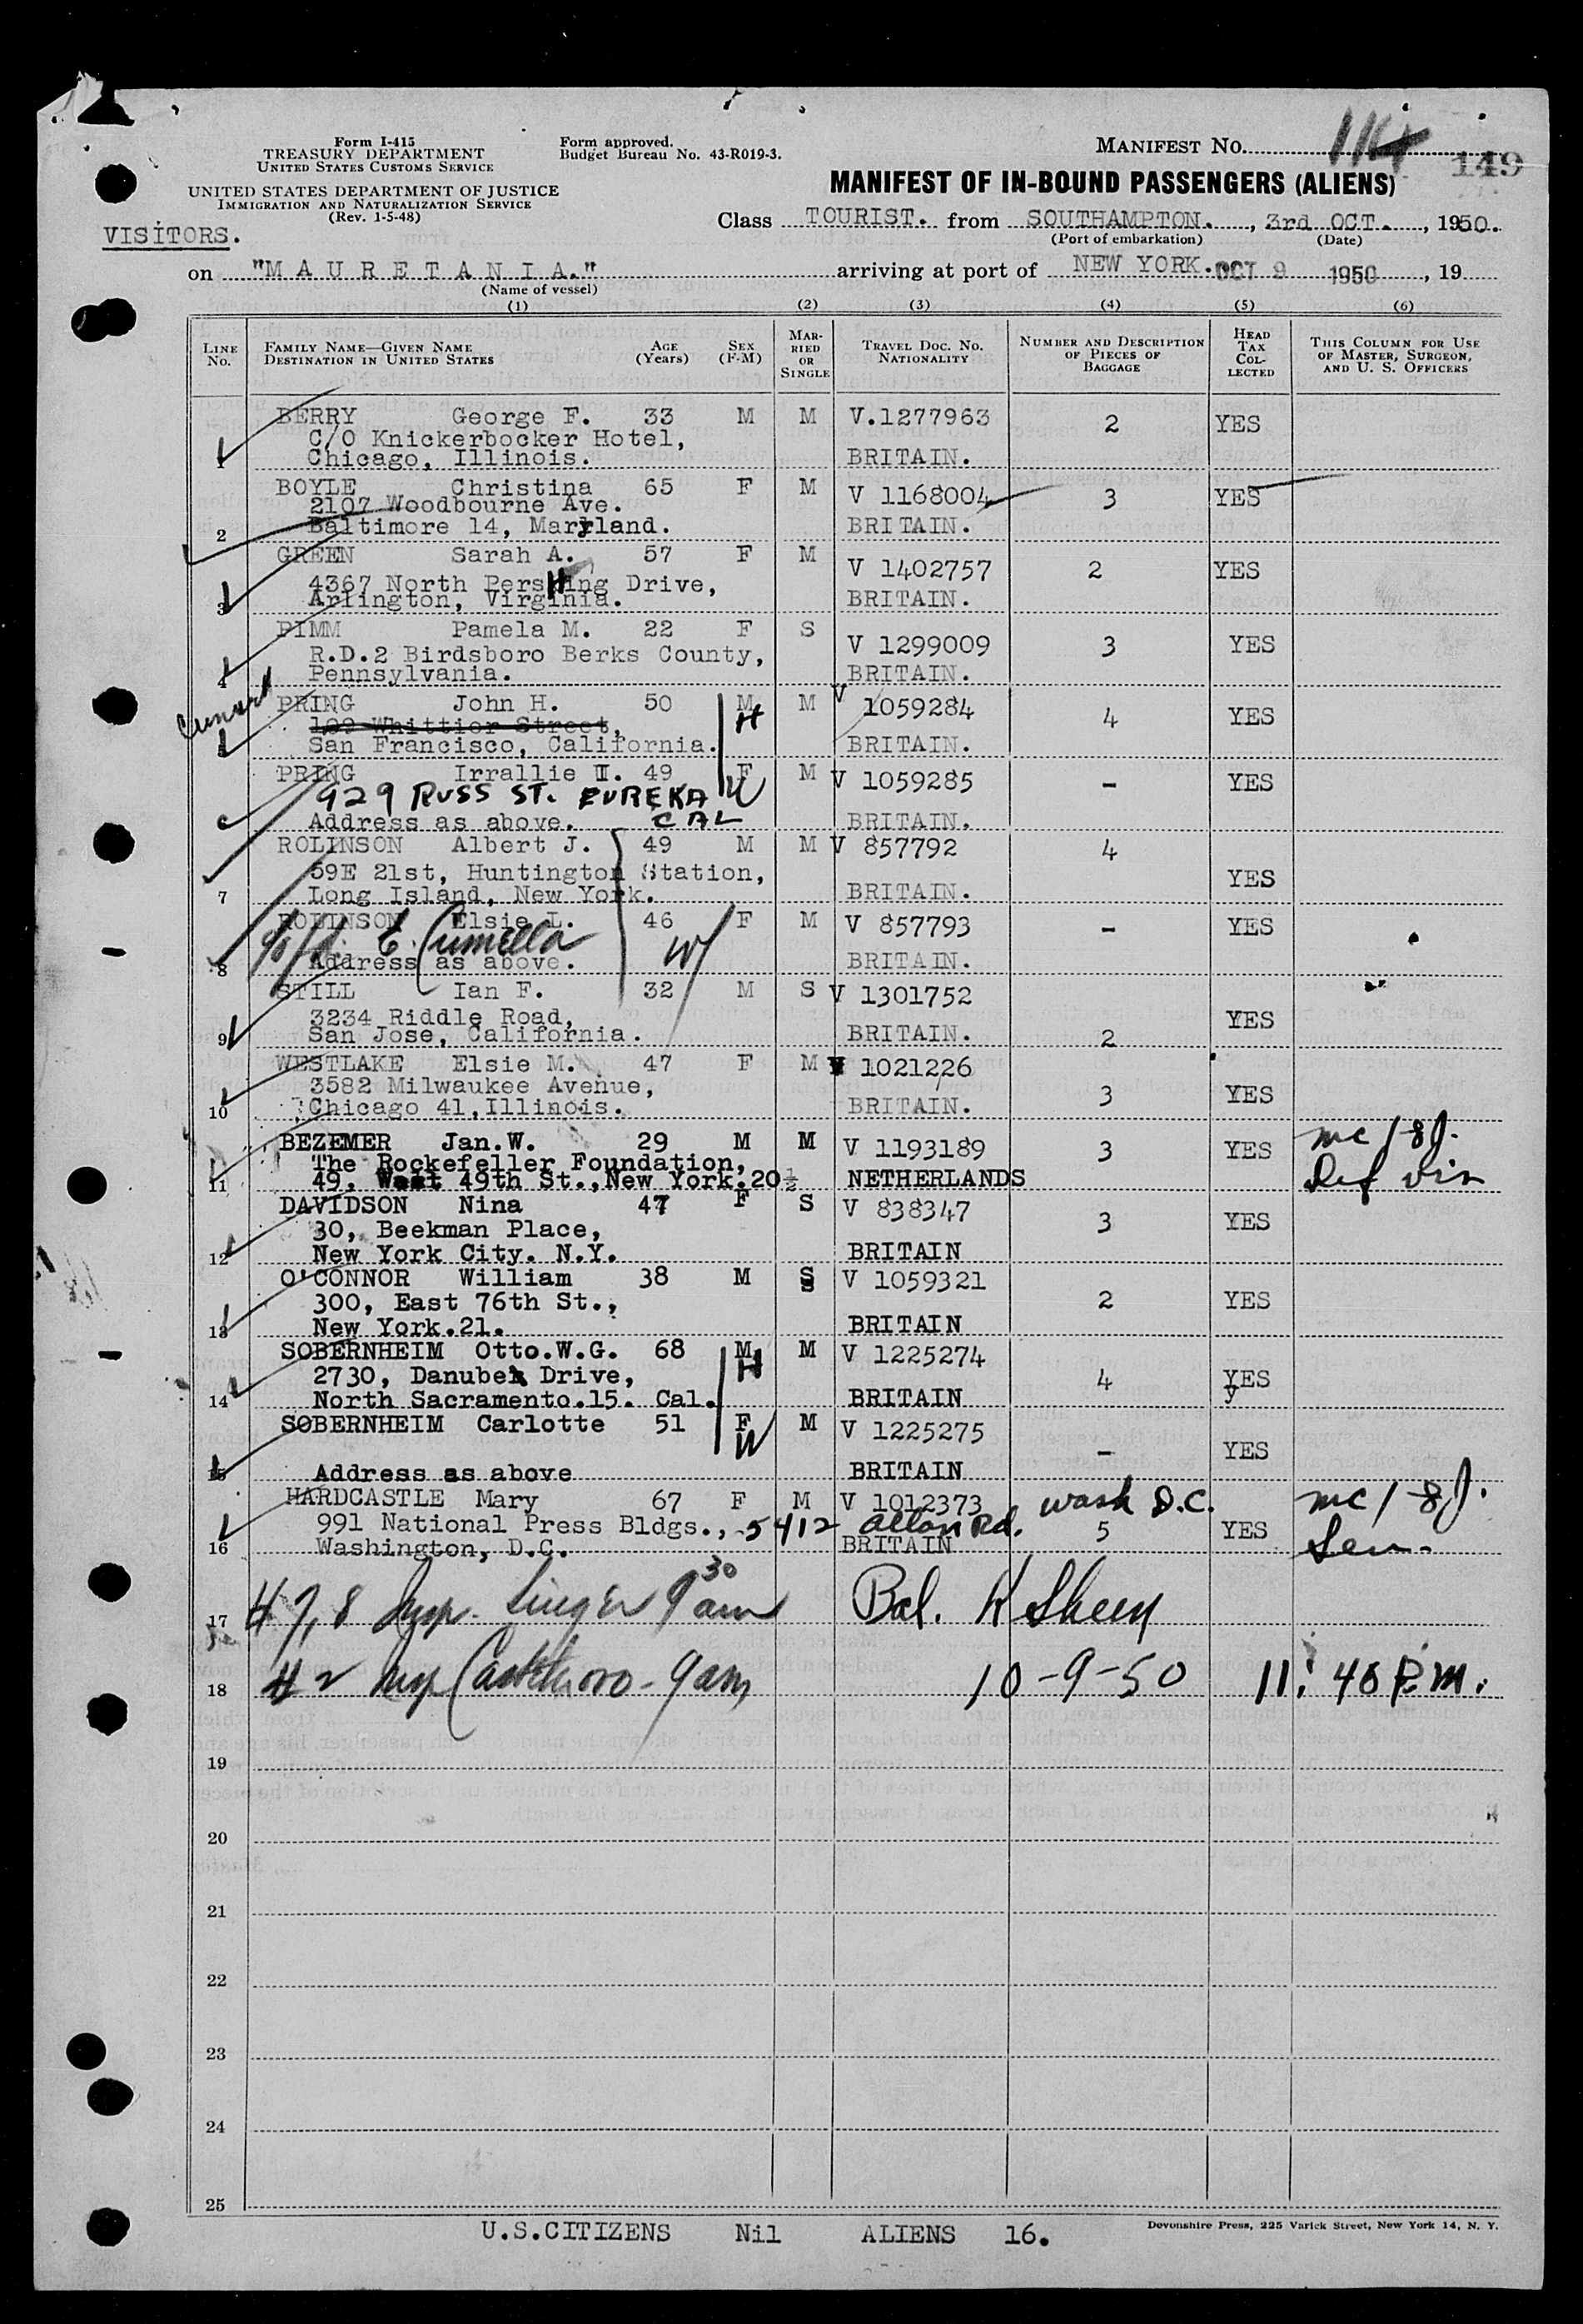 Form I-415
TREASURY DEPARTMENT
UNITED STATES CUSTOMS SERVICE
UNITED STATES DEPARTMENT OF JUSTICE
IMMIGRATION AND NATURALIZATION SERVICE
(Rev. 1-5-48)
Form approved.
Budget Bureau No. 43-R019-3.
MANIFEST NO. 114
149
MANIFEST OF IN-BOUND PASSENGERS (ALIENS)
VISITORS.
Class TOURIST. from SOUTHAMPTON., 3rd OCT., 1950.
(Port of embarkation) (Date)
on "MAURETANIA." arriving at port of NEW YORK. OCT 9 1950, 19
(Name of vessel)
(1) (2) (3) (4) (5) (6)
LINE No. FAMILY NAME—GIVEN NAME DESTINATION IN UNITED STATES AGE (Years) SEX (F-M) MARRIED OR SINGLE TRAVEL DOC. NO. NATIONALITY NUMBER AND DESCRIPTION OF PIECES OF BAGGAGE HEAD TAX COLLECTED THIS COLUMN FOR USE OF MASTER, SURGEON, AND U. S. OFFICERS
BERRY George F. 33 M M V.1277963 2 YES
C/O Knickerbocker Hotel,
1 Chicago, Illinois. BRITAIN.
BOYLE Christina 65 F M V 1168004 3 YES
2107 Woodbourne Ave.
2 Baltimore 14, Maryland. BRITAIN.
GREEN Sarah A. 57 F M V 1402757 2 YES
4367 North PersHing Drive,
3 Arlington, Virginia. BRITAIN.
PIMM Pamela M. 22 F S V 1299009 3 YES
R.D.2 Birdsboro Berks County,
4 Pennsylvania. BRITAIN.
Cunard
PRING John H. 50 M H M V 1059284 4 YES
109 Whittier Street,
San Francisco, California. BRITAIN.
PRING Irrallie I. 49 F W M V 1059285 - YES
929 RUSS ST. EUREKA CAL
Address as above. BRITAIN.
ROLINSON Albert J. 49 M M V 857792 4 YES
59E 21st, Huntington Station,
7 Long Island, New York. BRITAIN.
ROLINSON Elsie L. 46 F M V 857793 - YES
E. Cumella W/
8 Address as above. BRITAIN.
STILL Ian F. 32 M S V 1301752 2 YES
3234 Riddle Road,
9 San Jose, California. BRITAIN.
WESTLAKE Elsie M. 47 F M V 1021226 3 YES
3582 Milwaukee Avenue,
10 Chicago 41, Illinois. BRITAIN.
BEZEMER Jan.W. 29 M M V 1193189 3 YES mc / 8J.
The Rockefeller Foundation,
11 49, West 49th St., New York.20 ½ NETHERLANDS Def vis
DAVIDSON Nina 47 F S V 838347 3 YES
30, Beekman Place,
12 New York City. N.Y. BRITAIN
O'CONNOR William 38 M S V 1059321 2 YES
300, East 76th St.,
13 New York.21. BRITAIN
SOBERNHEIM Otto.W.G. 68 M H M V 1225274 4 YES
2730, Danube Drive,
14 North Sacramento.15. Cal. BRITAIN
SOBERNHEIM Carlotte 51 F W M V 1225275 - YES
15 Address as above BRITAIN
HARDCASTLE Mary 67 F M V 1012373 Wash D.C. 5 YES mc / 8J.
991 National Press Bldgs., 5412 Allan Rd.
16 Washington, D.C. BRITAIN Sen.
17 # 7, 8 Insp. Singer 9 30 am Bal. K Sheen
18 # 2 Insp 9 am 10-9-50 11:40 P.M.
19
20
21
22
23
24
25
U.S.CITIZENS Nil ALIENS 16.
Devonshire Press, 225 Varick Street, New York 14, N. Y.